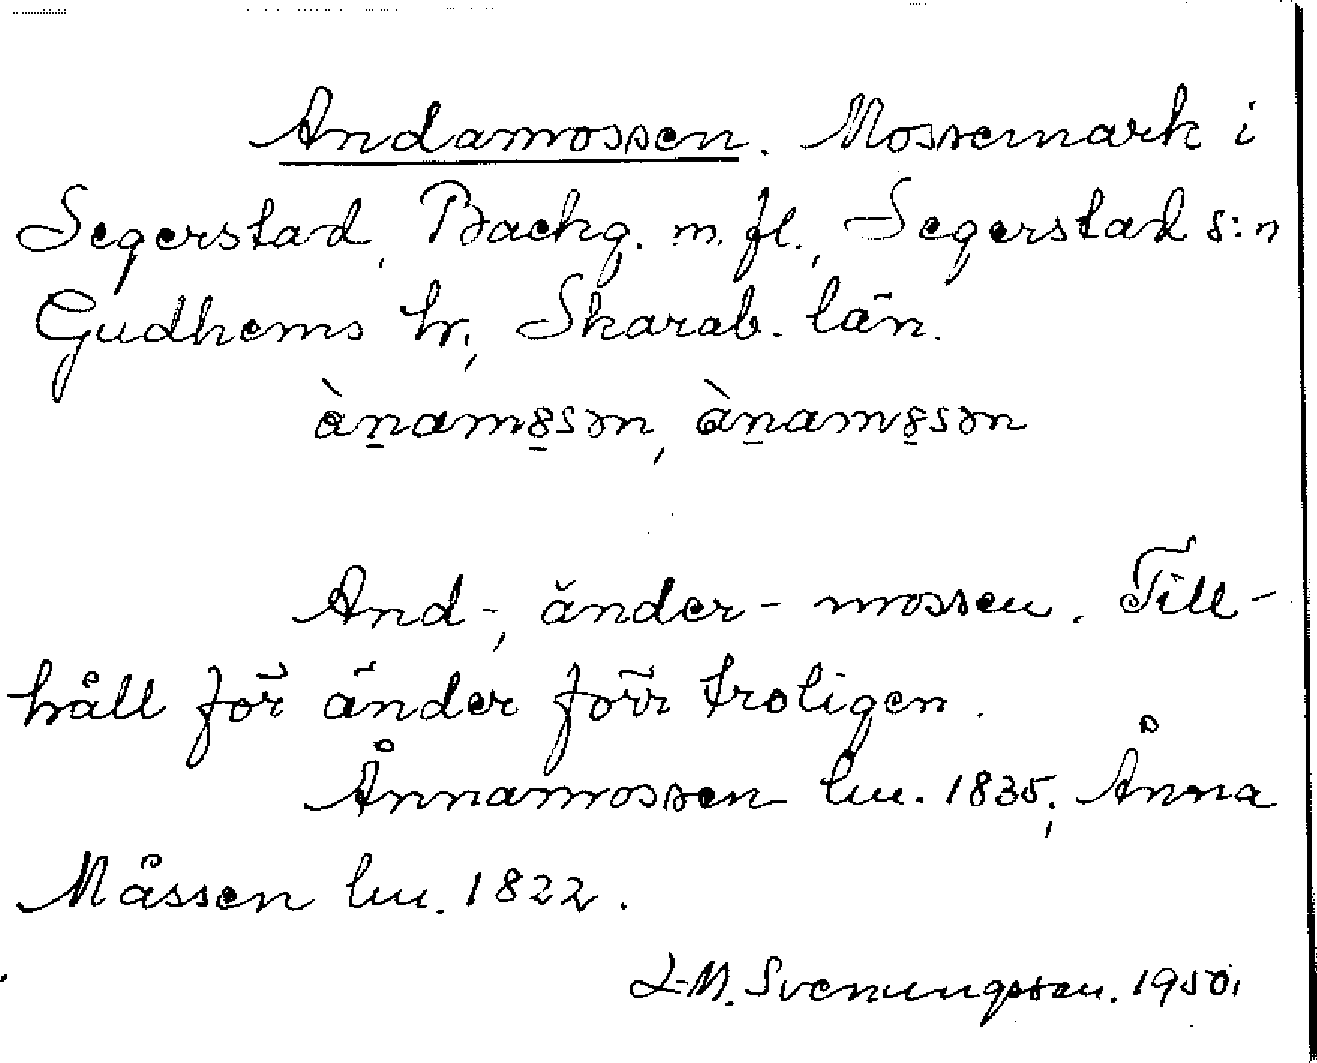 Andamossen. Mossemark i
Segerstad, Backg. m. fl., Segerstad s:n
Gudhems hr, Skarab. län.
ànamꝏsən, ànamꝏsən
And-, änder- mossen. Till-
håll för änder förr troligen.
Ånnamossen lm. 1835; Ånna
Måssen lm. 1822.
L-M. Svenungsson. 1950.